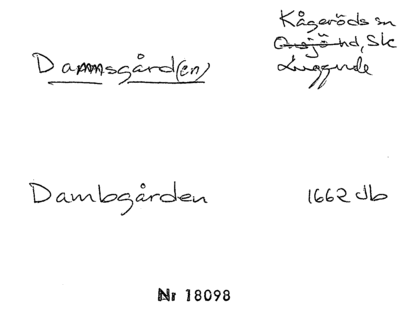 Kågeröds sn
Onsjö hd, Sk
Luggude
Dammsgård(en)
Dambgården 1662 Jb
Nr 18098